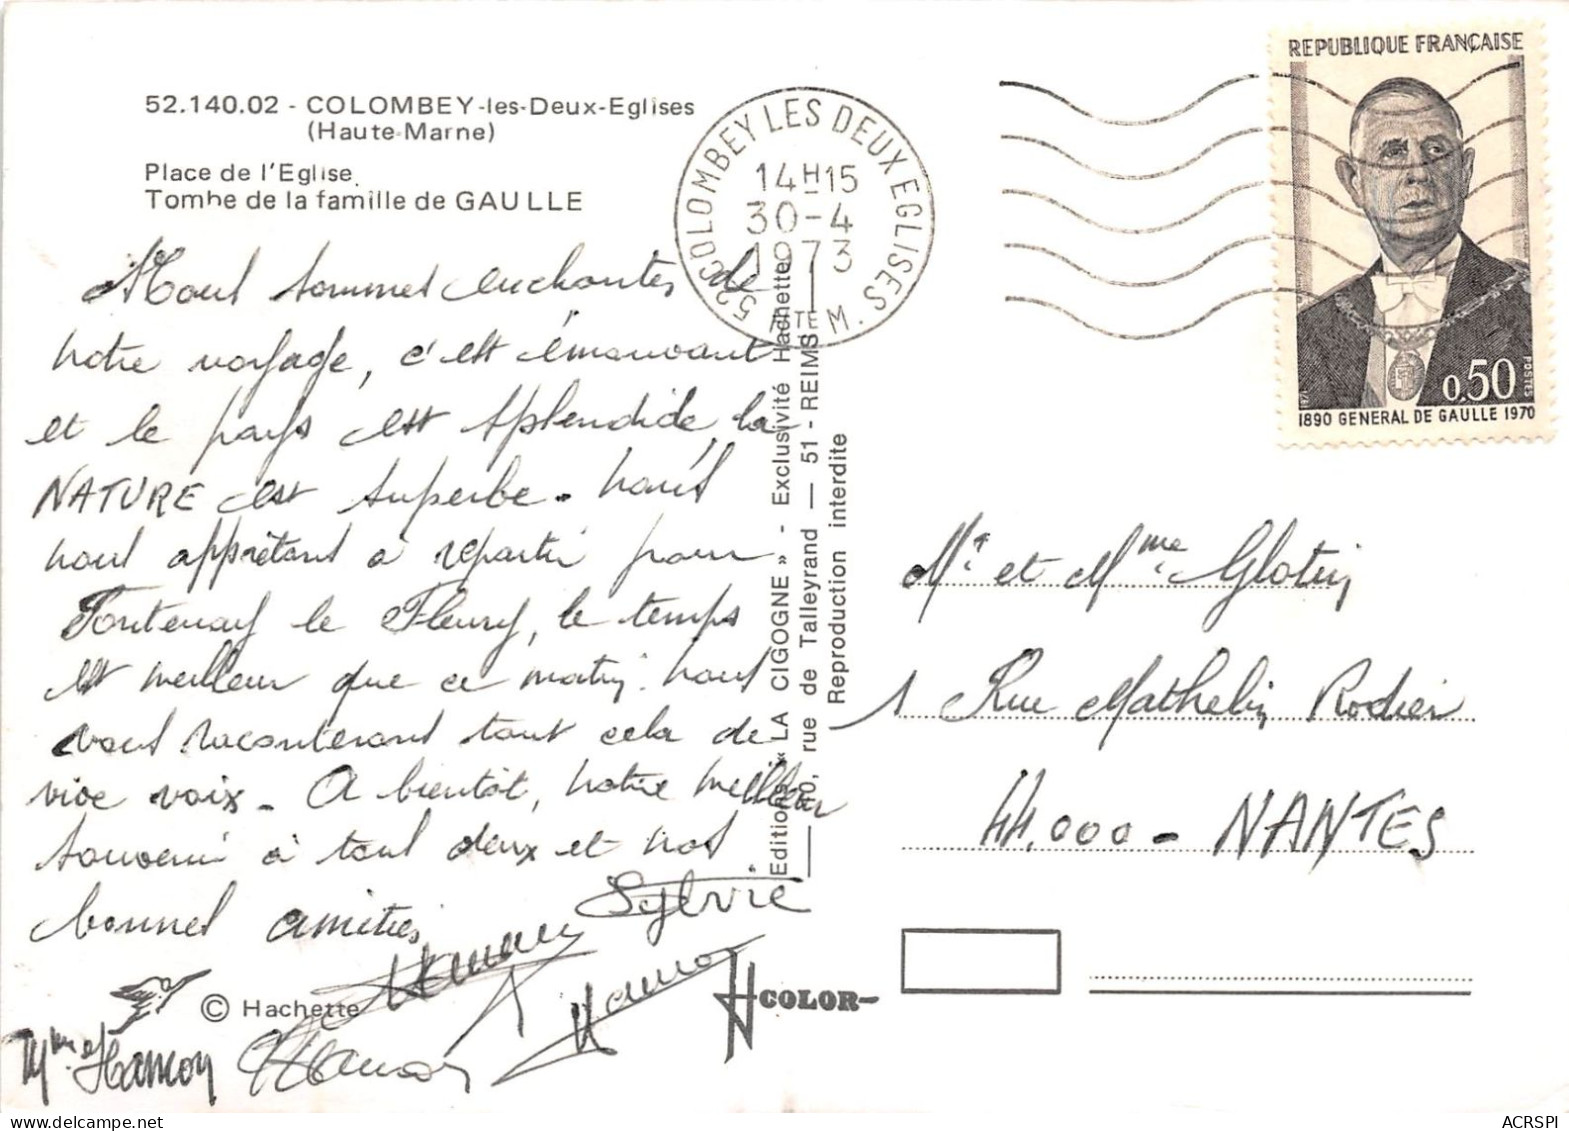 52.140.02 - COLOMBEY-les-Deux-Eglises
(Haute-Marne)
Place de l'Eglise.
Tombe de la famille de GAULLE
Nous sommes enchantés de
notre voyage, c'est émouvant
et le pays est splendide, la
NATURE est superbe. nous
nous apprêtons à repartir pour
Fontenay le Fleury, le temps
est meilleur que ce matin. nous
vous raconterons tout cela de
vive voix. A bientôt, notre meilleur
souvenir à tous deux et nos
bonnes amitiés
Sylvie
Mme Hamon
Hamon
Hamon
© Hachette
COLOR
Editions « LA CIGOGNE » - Exclusivité Hachette
rue de Talleyrand — 51 - REIMS
Reproduction interdite
52 COLOMBEY LES DEUX EGLISES
HTE M.
14H15
30-4
1973
REPUBLIQUE FRANÇAISE
0,50
POSTES
1890 GENERAL DE GAULLE 1970
Mr et Mme Glotin
1 Rue Mathelin Rodier
44.000 - NANTES
ACRSPI